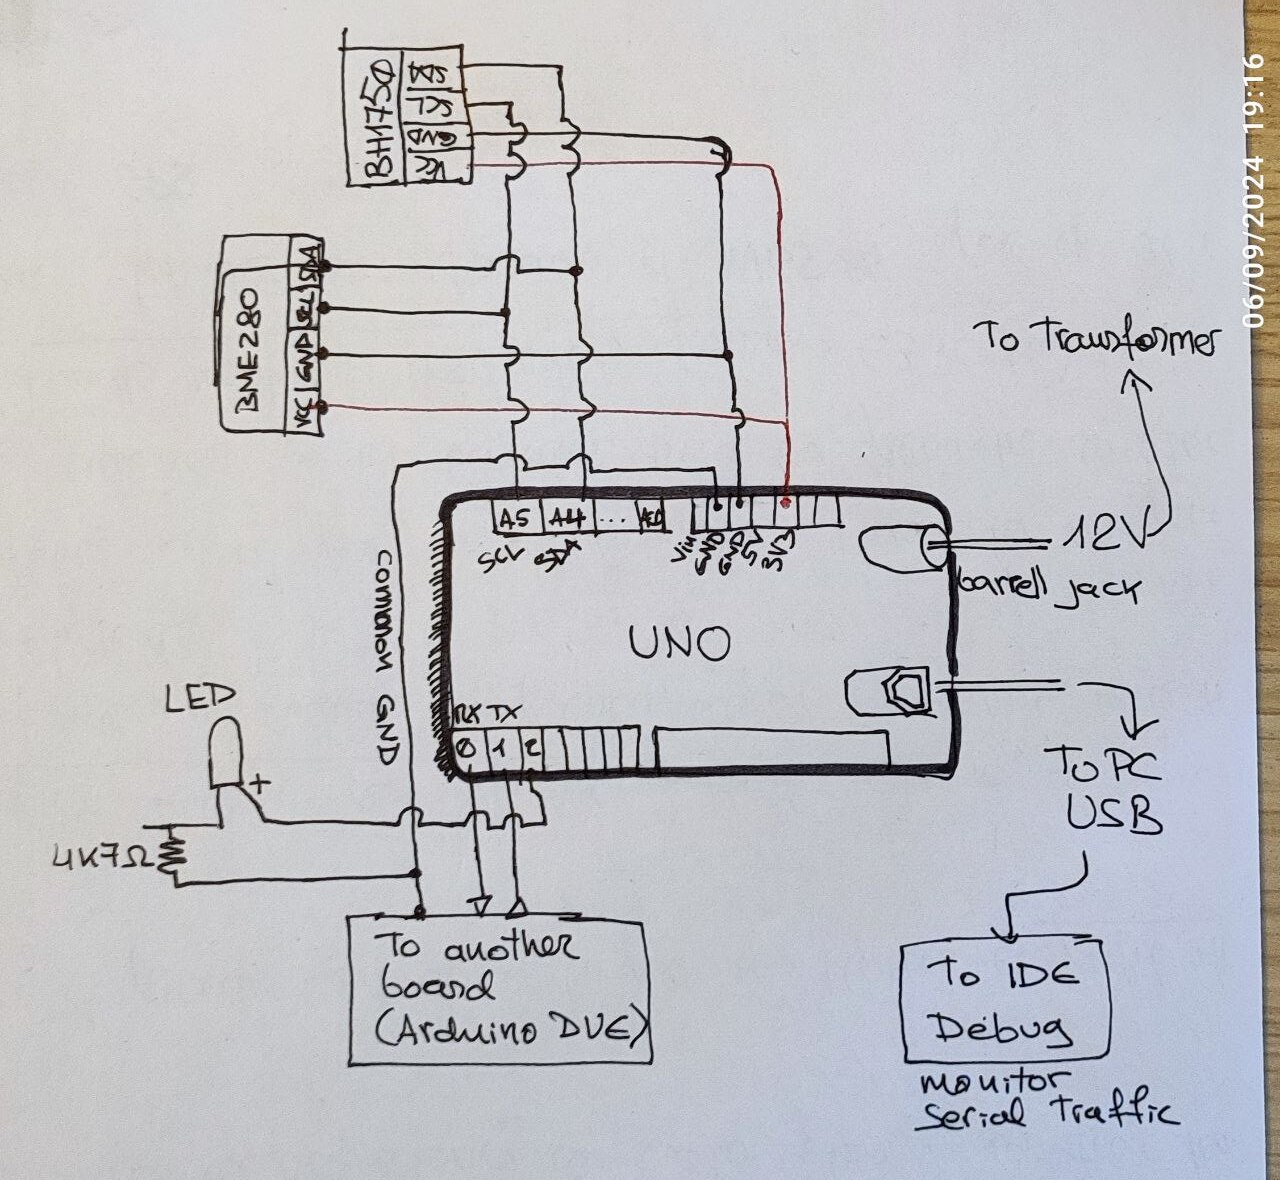 BH1750
SDA
SCL
GND
VCC
06/09/2024 19:16
BME280
SDA
SCL
GND
VCC
To Transformer
A5 A4 ... A0
SCL SDA
Vin GND GND 5V 3V3
12V
barrell jack
common GND
UNO
LED
+
RX TX
0 1 2
4K7Ω
To PC
USB
To another
board
(Arduino DUE)
To IDE
Debug
monitor
serial Traffic